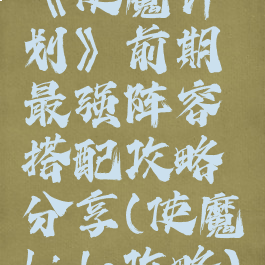 《使魔计
划》前期
最强阵容
搭配攻略
分享(使魔
攻略)